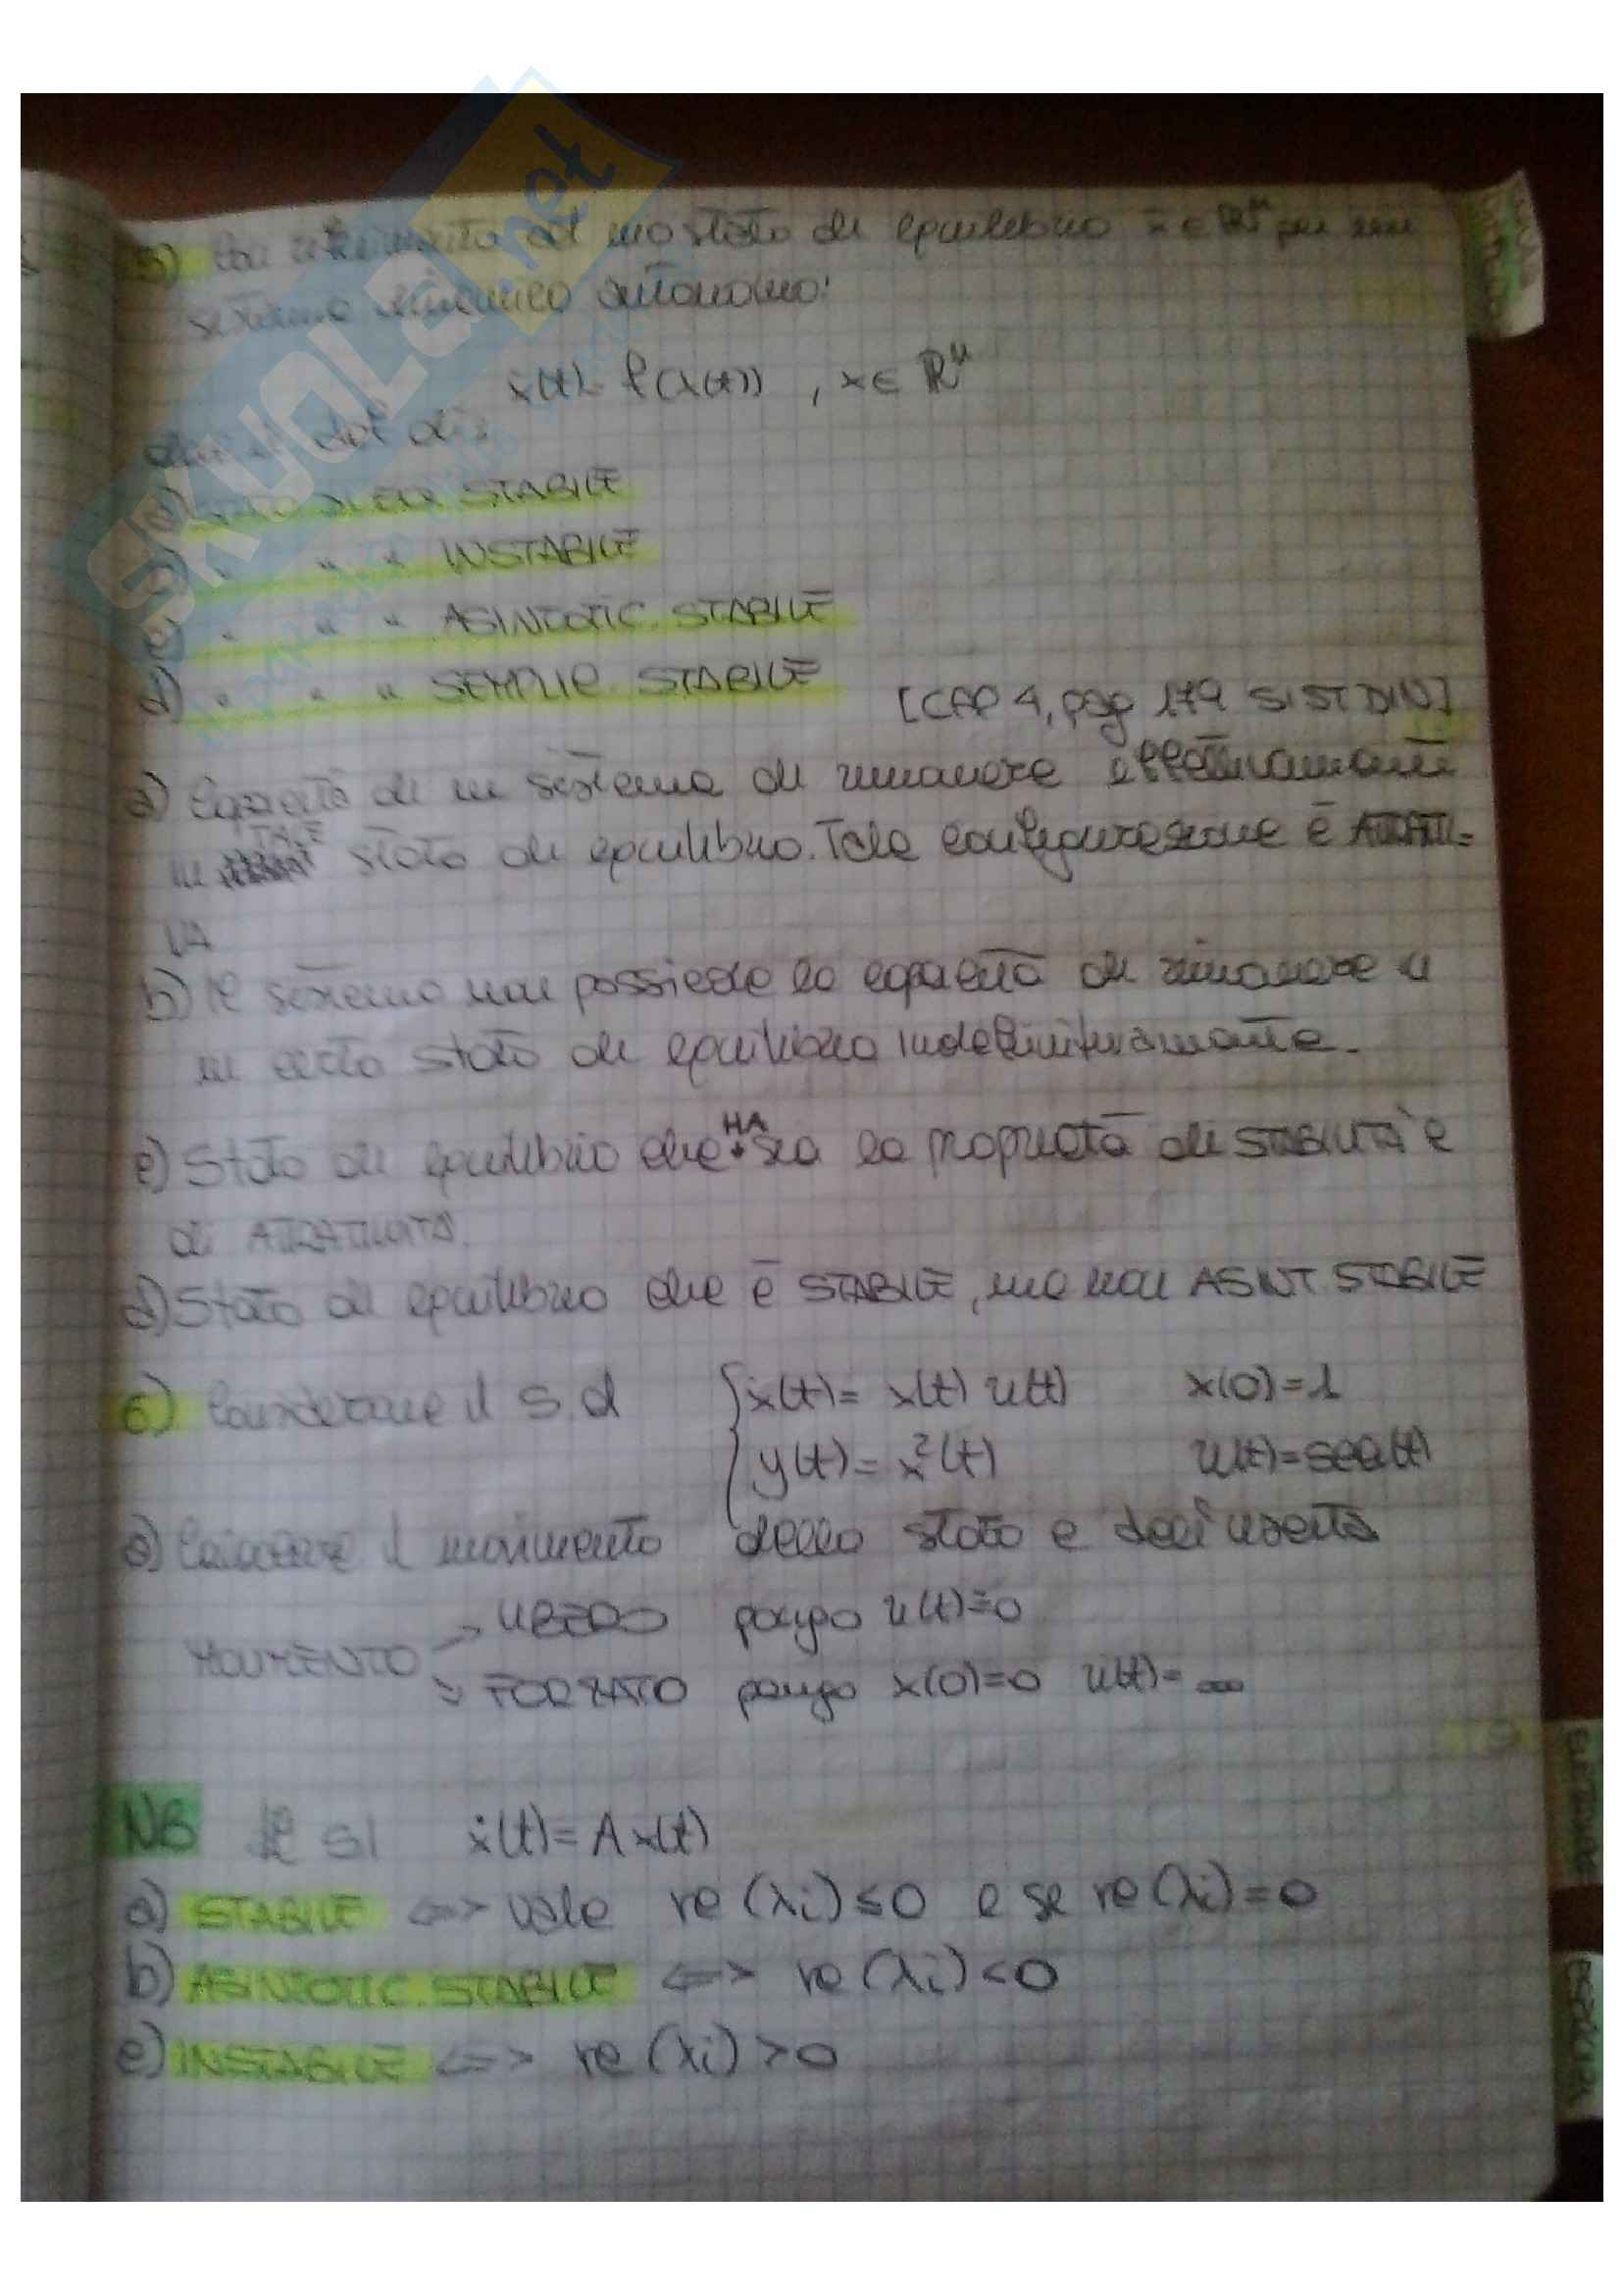 5) Con riferimento ad uno stato di equilibrio x̄ ∈ ℝⁿ per un
sistema dinamico autonomo:
ẋ(t) = f(x(t)) , x ∈ ℝⁿ
def di:
a) STATO DI EQ STABILE
b) " " " INSTABILE
c) " " " ASINTOTIC. STABILE
d) " " " SEMPLIC. STABILE
[CAP 4, pag 179 SIST DIN]
a) Capacità di un sistema di rimanere effettivamente
in TALE stato di equilibrio. Tale configurazione è ATTRATTI=
VA
b) Il sistema non possiede la capacità di rimanere in
un certo stato di equilibrio indefinitivamente.
c) Stato di equilibrio che HA sia la proprietà di STABILITÀ e
di ATTRATTIVITÀ.
d) Stato di equilibrio che è STABILE, ma non ASINT STABILE
6) Considerare il S.d ẋ(t) = x(t) u(t) x(0)=1
y(t) = x²(t) u(t)=sca(t)
a) Calcolare il movimento dello stato e dell'uscita
MOVIMENTO -> LIBERO pongo u(t)=0
-> FORZATO pongo x(0)=0 u(t)=
N6 SI ẋ(t) = A x(t)
a) STABILE <=> vale re(λi) ≤ 0 e se re(λi) = 0
b) ASINTOTIC. STABILE <=> re(λi) < 0
c) INSTABILE <=> re(λi) > 0
SKUOLA.net